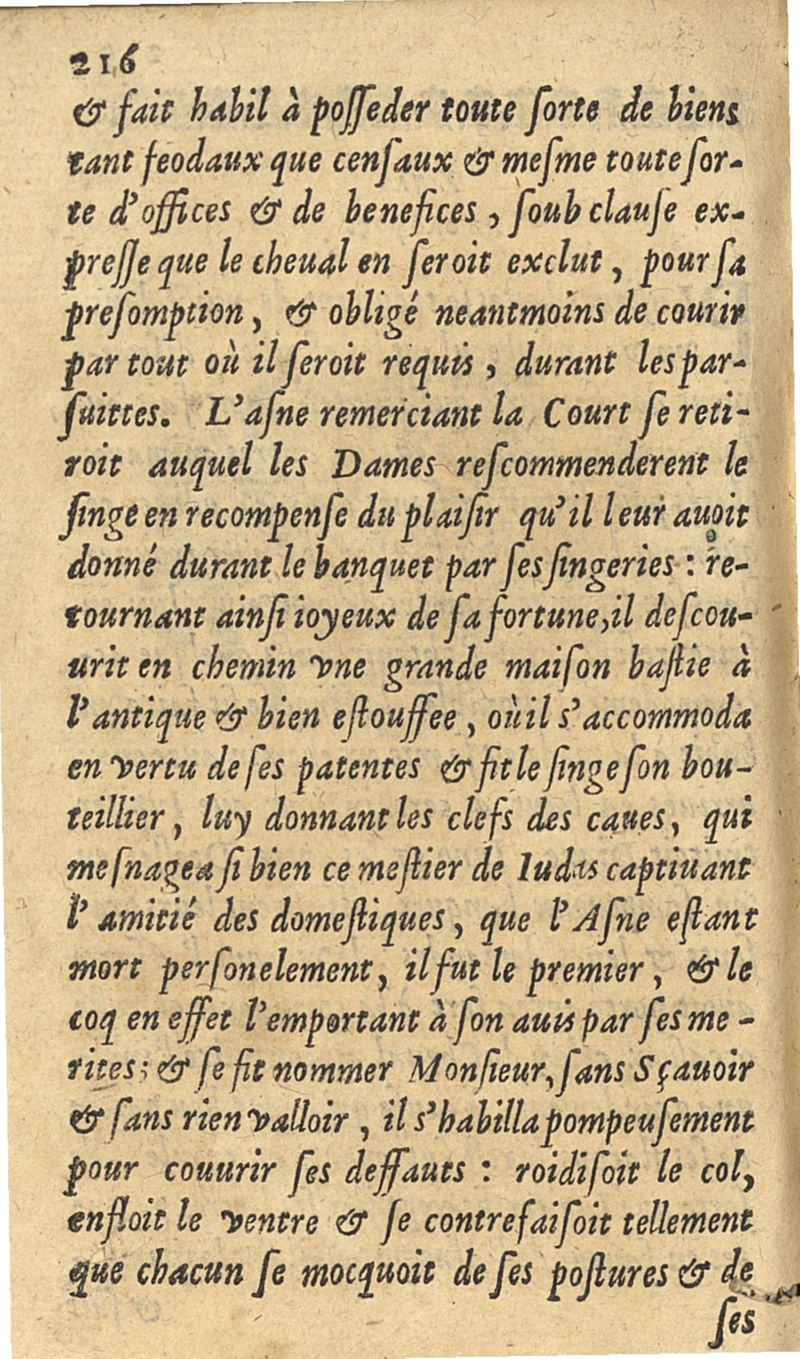 216
& fait habil à posseder toute sorte de biens
tant feodaux que censaux & mesme toute sor-
te d'offices & de benefices, soub clause ex-
presse que le cheual en seroit exclut, pour sa
presomption, & obligé neantmoins de courir
par tout où il seroit requis, durant les par-
suittes. L'asne remerciant la Court se reti-
roit auquel les Dames rescommenderent le
singe en recompense du plaisir qu'il leur auoit
donné durant le banquet par ses singeries : re-
tournant ainsi ioyeux de sa fortune, il descou-
urit en chemin vne grande maison bastie à
l'antique & bien estouffee, où il s'accommoda
en vertu de ses patentes & fit le singe son bou-
teillier, luy donnant les clefs des caues, qui
mesnagea si bien ce mestier de Iudas captiuant
l'amitié des domestiques, que l'Asne estant
mort personelement, il fut le premier, & le
coq en effet l'emportant à son auis par ses me-
rites; & se fit nommer Monsieur, sans Sçauoir
& sans rien valloir, il s'habilla pompeusement
pour couurir ses deffauts : roidisoit le col,
enfloit le ventre & se contrefaisoit tellement
que chacun se mocquoit de ses postures & de
ses